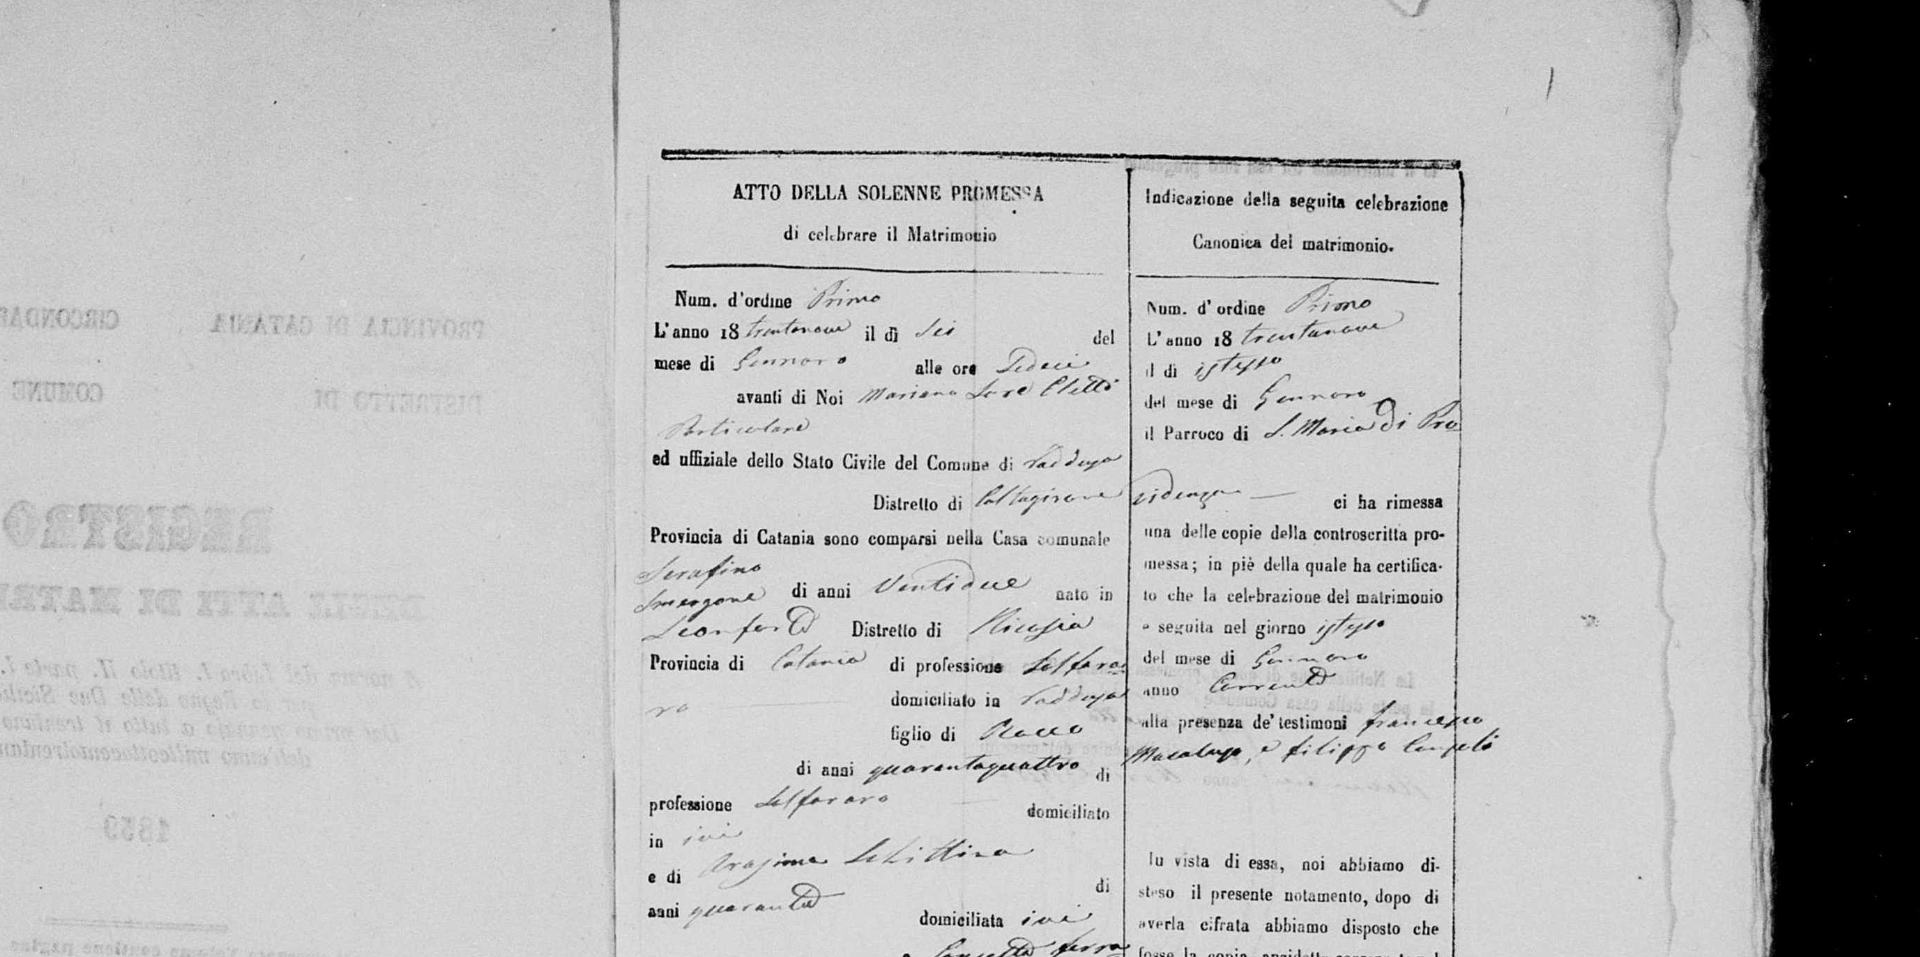 ATTO DELLA SOLENNE PROMESSA
di celebrare il Matrimonio
Num. d'ordine Primo
L'anno 18 trentanove il dì Sei del
mese di Gennaro alle ore Sedeci
avanti di Noi Mariano Eletto
Particolare
ed uffiziale dello Stato Civile del Comune di Raddusa
Distretto di Caltagirone
Provincia di Catania sono comparsi nella Casa comunale
Serafino
di anni Ventidue nato in
Leonforte Distretto di Nicosia
Provincia di Catania di professione Solfara
ro domiciliato in Raddusa
figlio di Rocco
di anni quarantaquattro di
professione Solfararo domiciliato
in ivi
e di Schittina di
anni quaranta
domiciliata ivi
e Concetta Ferra
Indicazione della seguita celebrazione
Canonica del matrimonio.
Num. d'ordine Primo
L'anno 18 trentanove
il di istesso
del mese di Gennaro
il Parroco di S. Maria di Pro
videnza ci ha rimessa
una delle copie della controscritta pro-
messa; in piè della quale ha certifica-
to che la celebrazione del matrimonio
e seguita nel giorno istesso
del mese di Gennaro
anno Corrente
alla presenza de' testimoni Francesco
Macaluso, e Filippo
In vista di essa, noi abbiamo di-
steso il presente notamento, dopo di
averla cifrata abbiamo disposto che
fosse la copia anzidetta
PROVINCIA DI CATANIA CIRCONDAR
DISTRETTO DI COMUNE
REGISTRO
DEGLI ATTI DI MATRI
1839